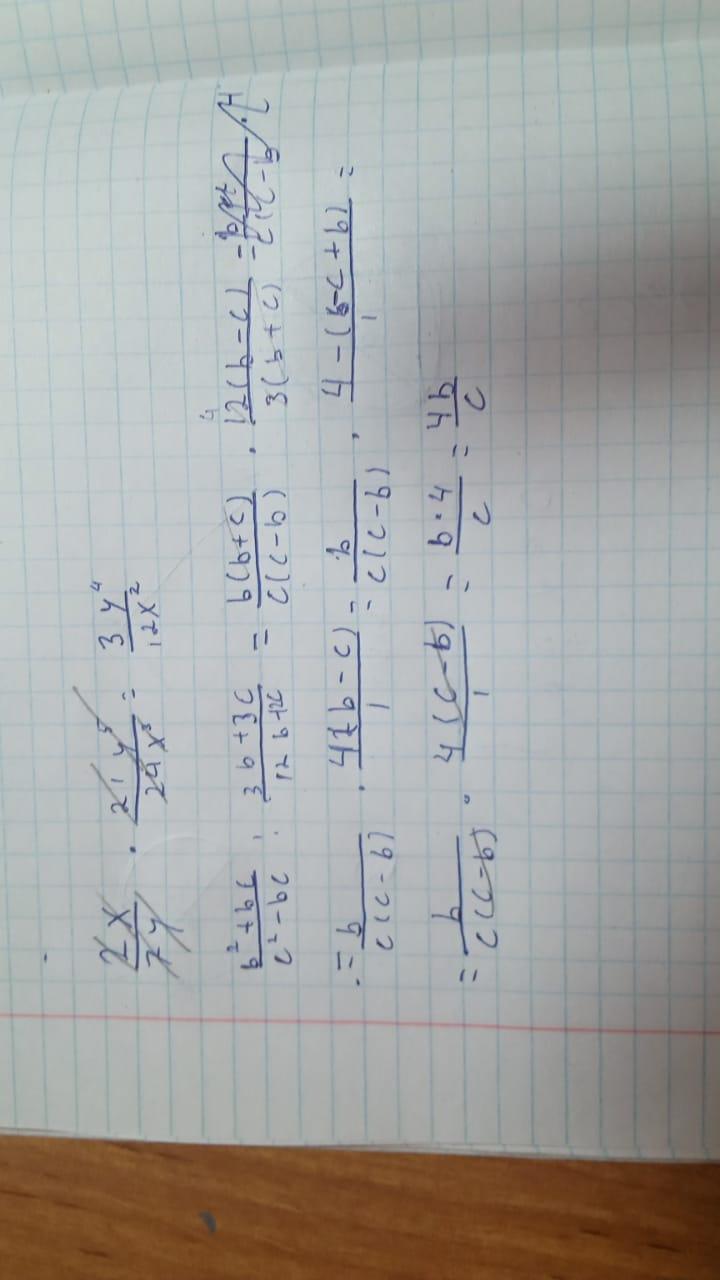 2x/7y · 21y⁵/24x³ = 3y⁴/12x²
b²+bc/c²-bc : 3b+3c/12b+12c = b(b+c)/c(c-b) · 12(b-c)/3(b+c) =
= b/c(c-b) · 4(b-c)/1 = b/c(c-b) · 4-(b-c+b)/1 =
= b/c(c-b) · 4(c-b)/1 = b·4/c = 4b/c